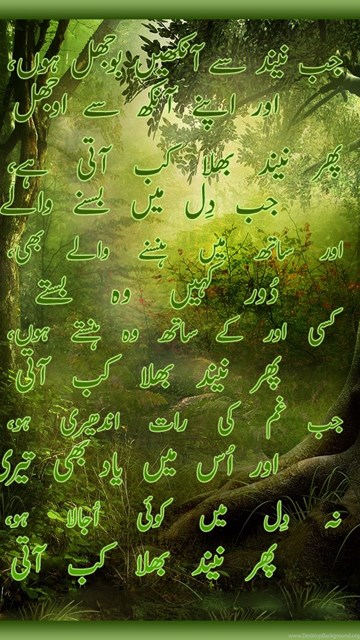 جب نیند سے آنکھیں بوجھل ہوں،
اور اپنے آنکھ سے اوجھل
پھر نیند بھلا کب آتی ہے،
جب دِل میں بسنے والے
اور ساتھ میں ہنسنے والے بھی،
دُور کہیں وہ بستے
کسی اور کے ساتھ وہ ہنستے ہوں،
پھر نیند بھلا کب آتی
جب غم کی رات اندھیری ہو،
اور اُس میں یاد بھی تیری
نہ دِل میں کوئی اُجالا ہو،
پھر نیند بھلا کب آتی